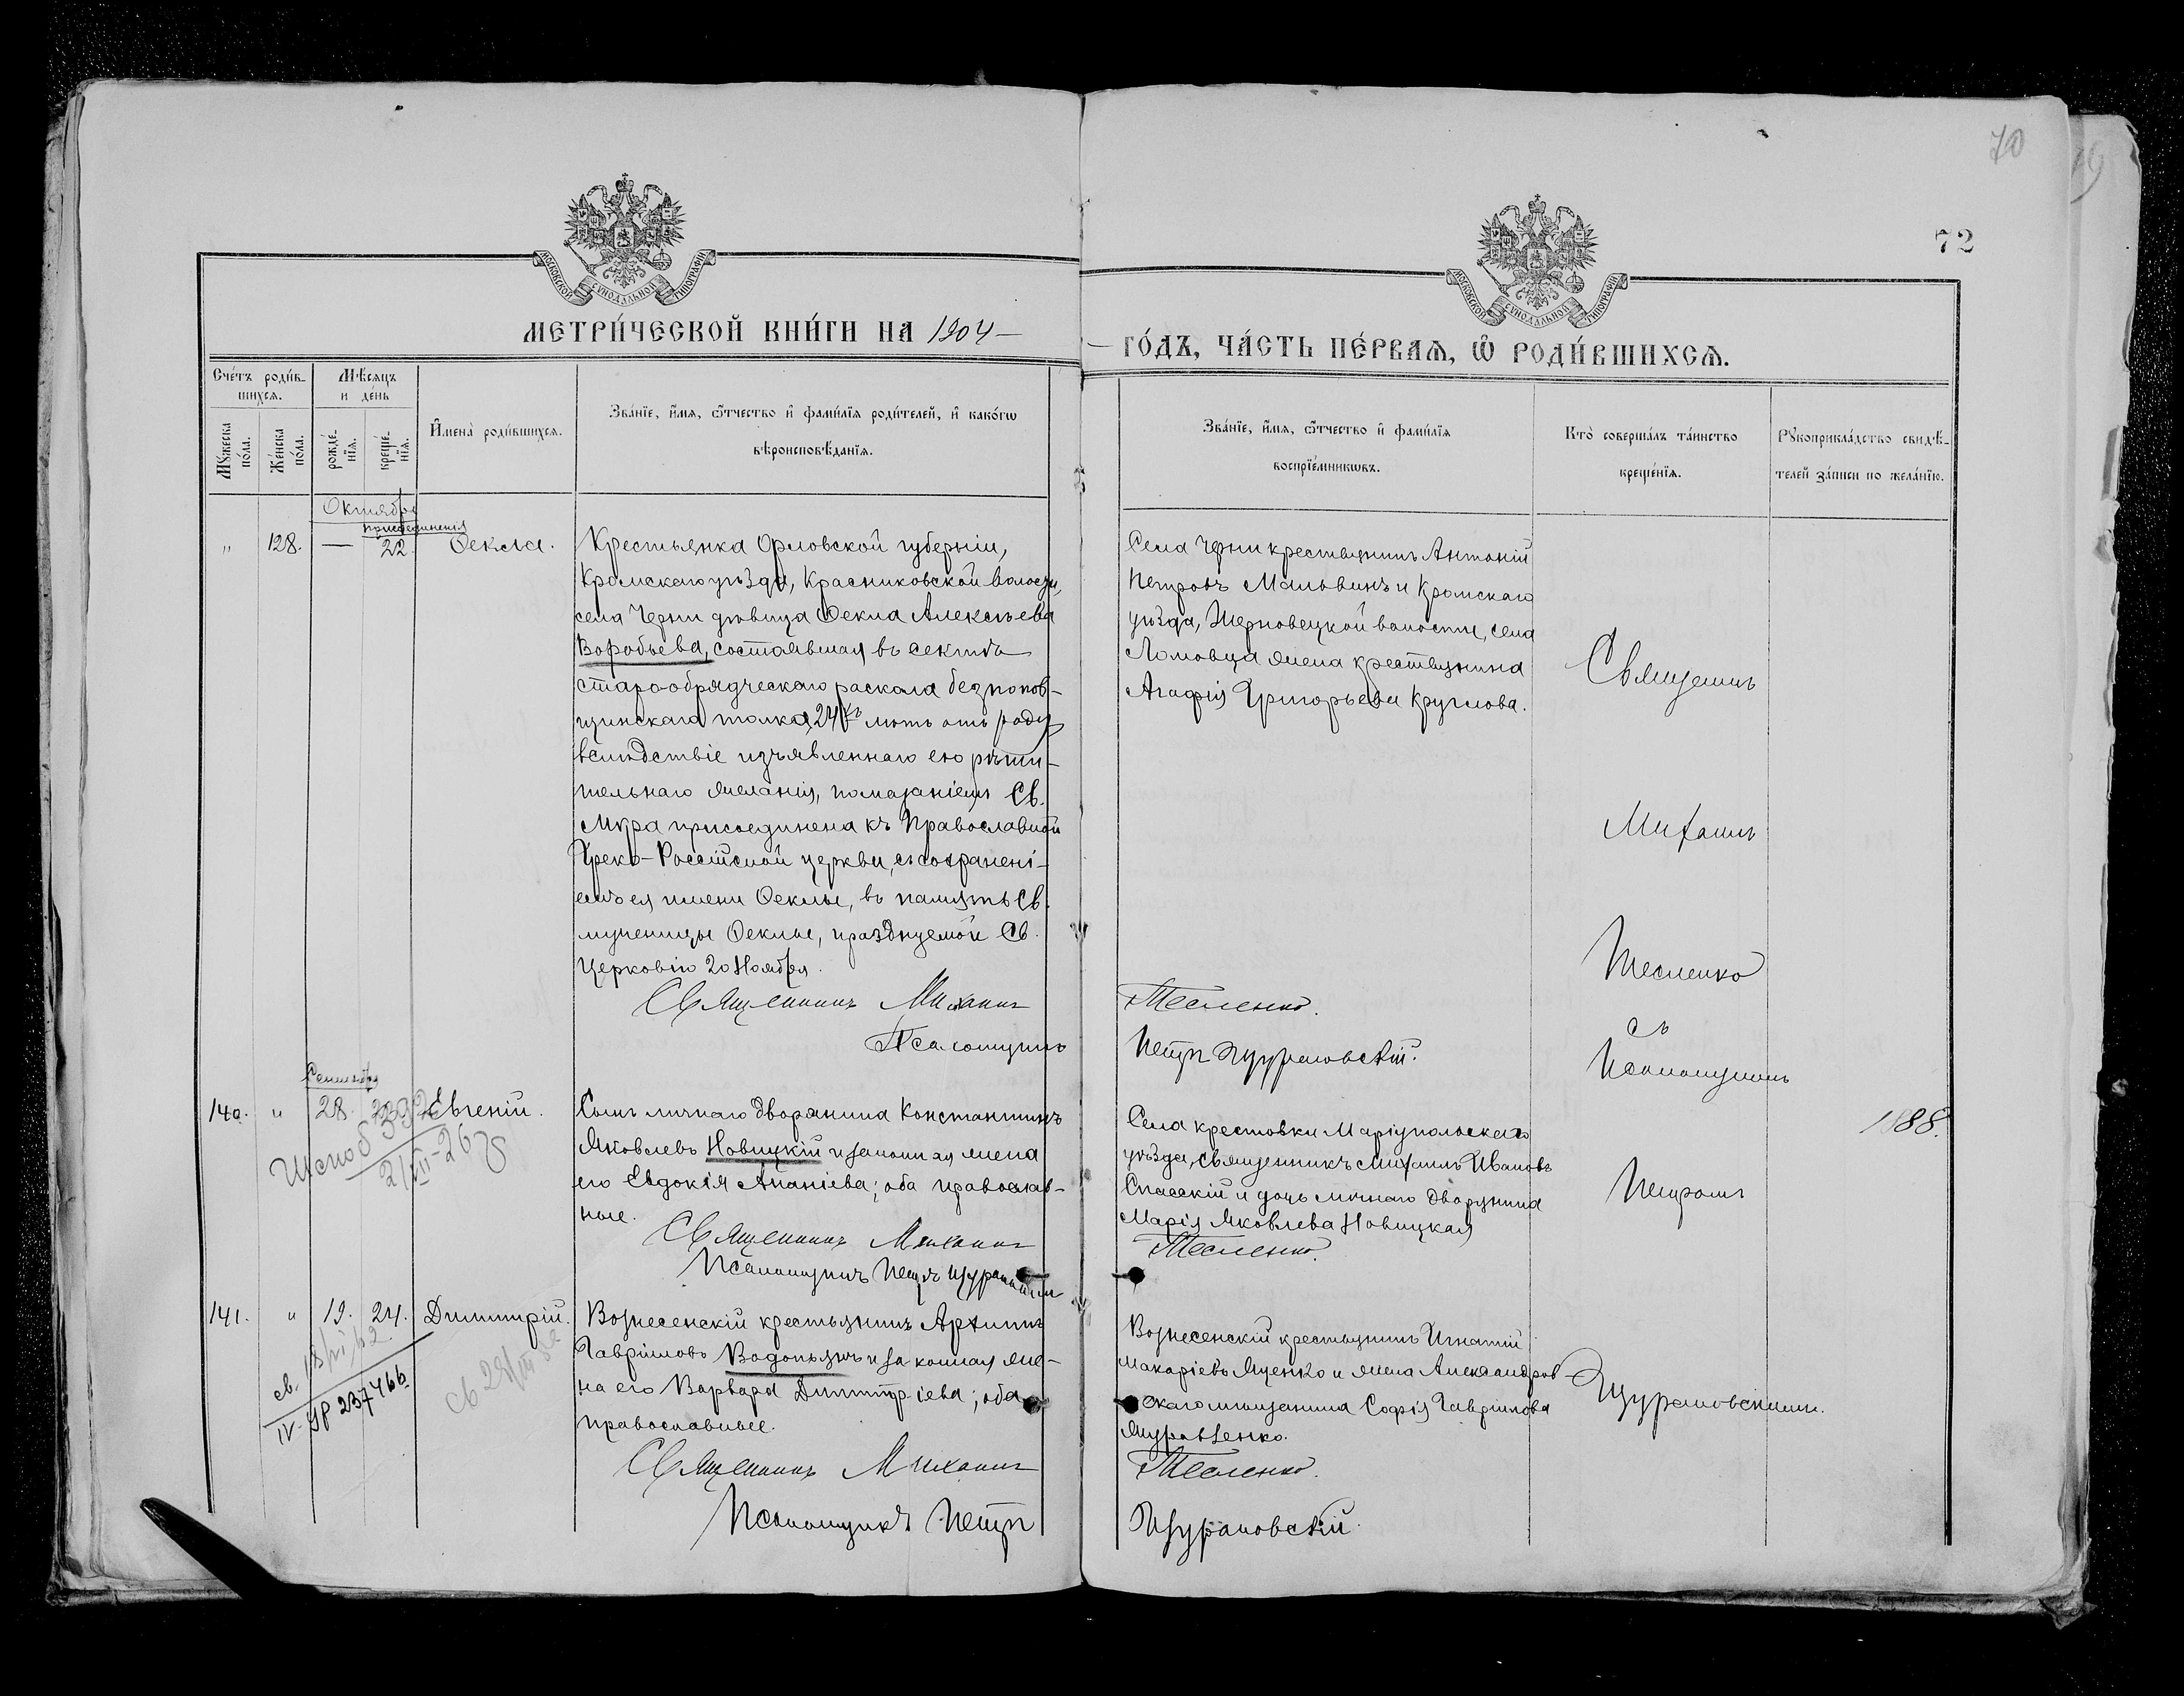 70
72
МОСКОВСКОЙ СѴНОДАЛЬНОЙ ТИПОГРАФІИ
МОСКОВСКОЙ СѴНОДАЛЬНОЙ ТИПОГРАФІИ
МЕТРИ́ЧЕСКОЙ КНИ́ГИ НА 1904 —
— ГО́ДЪ, ЧА́СТЬ ПЕ́РВАѦ, Ѽ РОДИ́ВШИХСѦ.
Сче́тъ роди́в-
шихсѧ.
Мѣ́сѧцъ
и де́нь
Мꙋ́жеска по́ла.
Же́нска по́ла.
рожде́-
нїѧ.
креще́-
нїѧ.
И҆мена̀ роди́вшихсѧ.
Зва́нїе, и҆́мѧ, ѻ҆́тчество и҆ фами́лїѧ роди́телей, и҆ како́гѡ
вѣроисповѣ́данїѧ.
Зва́нїе, и҆́мѧ, ѻ҆́тчество и҆ фами́лїѧ
воспрїе́мникѡвъ.
Кто̀ соверша́лъ та́инство
креще́нїѧ.
Рꙋкоприкла́дство свидѣ́-
телей за́писи по жела́нїю.
Октября
присоединенія
" 128. — 22. Ѳекла.
Крестьянка Орловской губерніи,
Кромскаго уѣзда, Красниковской волости,
села Черни дѣвица Ѳекла Алексѣева
Воробьева, состоявшая въ сектѣ
старообрядческаго раскола безпопов-
щинскаго толка, 24хъ лѣтъ отъ роду
вслѣдствіе изъявленнаго ею рѣши-
тельнаго желанія, помазаніемъ Св.
Мѵра присоединена къ Православной
Греко-Россійской церкви, съ сохранені-
емъ ея имени Ѳеклы, въ память Св.
мученицы Ѳеклы, празднуемой Св.
Церковію 20 Ноября.
Священникъ Михаилъ
Псаломщикъ
Села Черни крестьянинъ Антоній
Петровъ Мальвинъ и Кромскаго
уѣзда, Шерновецкой волости, села
Ломовца жена крестьянина
Агафія Григорьева Круглова.
Тесленко.
Петръ Щурановскій.
Священникъ
Михаилъ
Тесленко
съ
Псаломщикомъ
Петромъ
Щурановскимъ.
Сентября
140. " 28. Евгеній.
Сынъ личнаго дворянина Константинъ
Яковлевъ Новицкій и законная жена
его Евдокія Ананіева; оба православ-
ные.
Священникъ Михаилъ
Псаломщикъ Петръ Щурановскій
Села Крестовки Маріупольскаго
уѣзда, священникъ Михаилъ Ивановъ
Спасскій и дочь личнаго дворянина
Марія Яковлева Новицкая
Тесленко.
1888.
2/VII-26
141. " 19. 24. Димитрій.
Вознесенскій крестьянинъ Архипъ
Гавріиловъ Водопьянъ и законная же-
на его Варвара Димитріева; оба
православные.
Священникъ Михаилъ
Псаломщикъ Петръ
Вознесенскій крестьянинъ Игнатій
Макаріевъ Яценко и жена Александров-
скаго мѣщанина Софія Гавріилова
Журавленко.
Тесленко.
Щурановскій.
св. 18/VI 62
IV-ЯР 237466